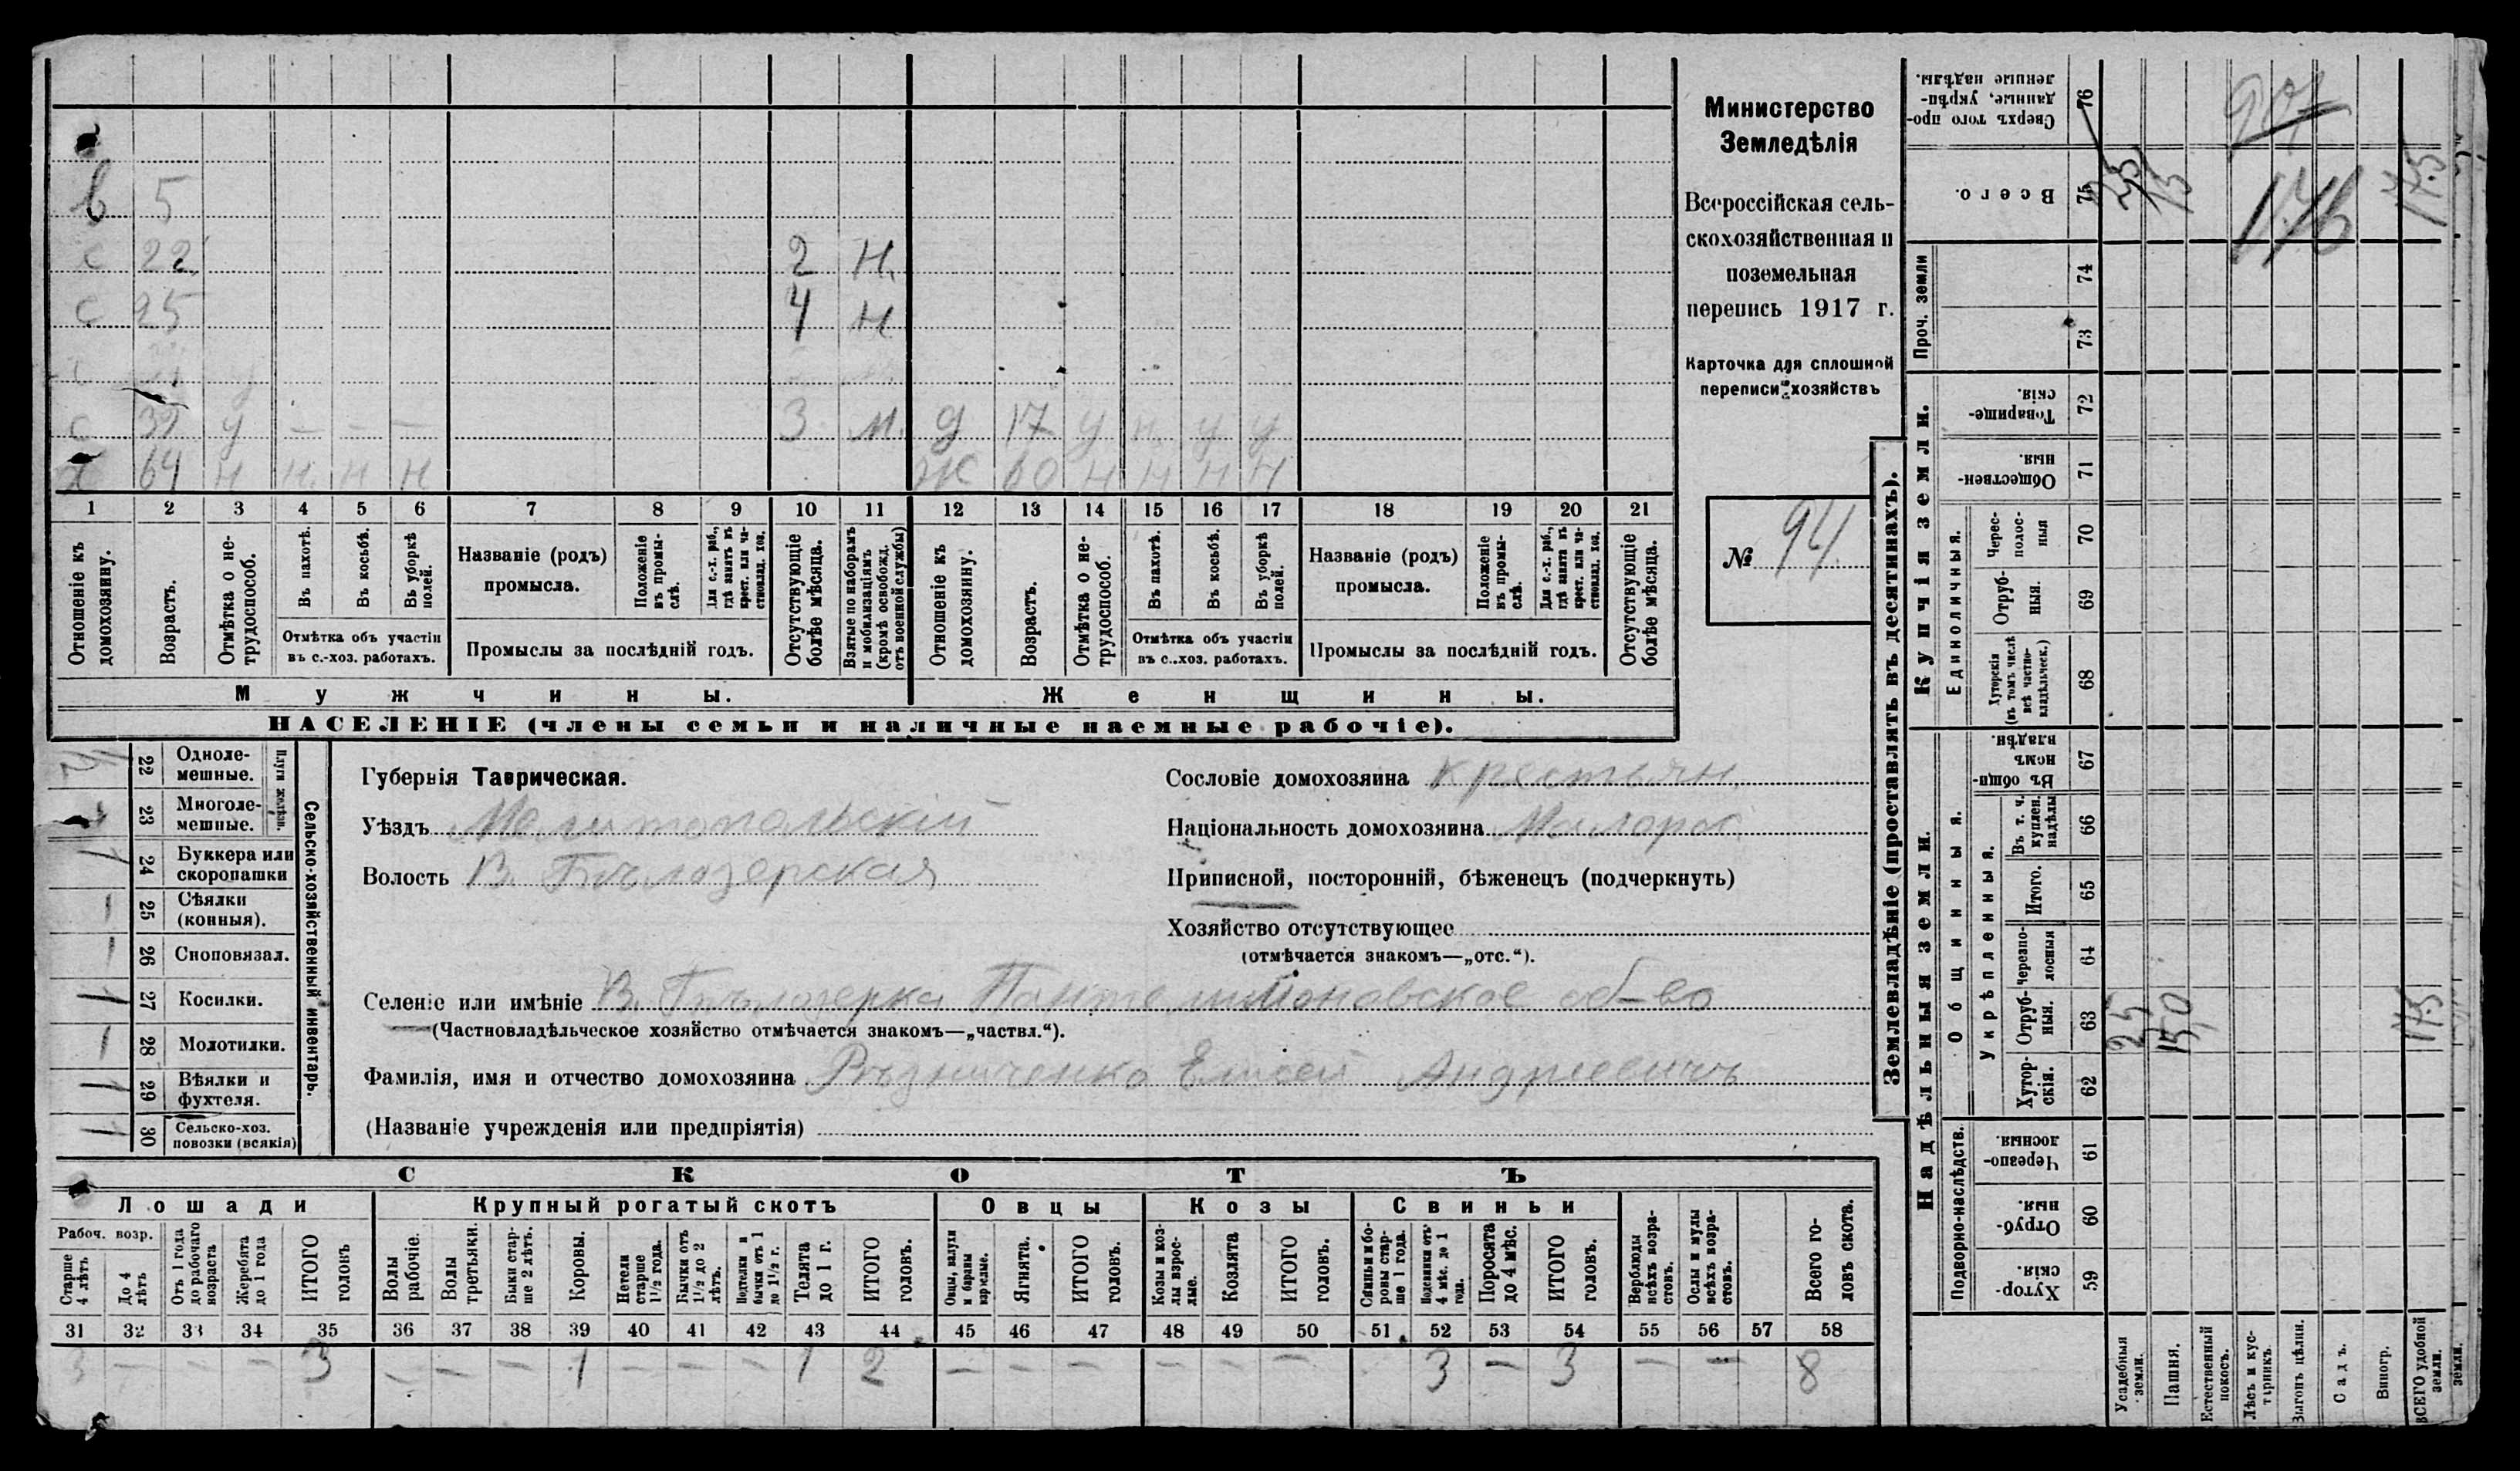 в 5
с 22 2 н.
с 25 4 н
с 39 у — — — 3 м. д 17 у н у у
64 н н. н н ж 60 н н н н
1 2 3 4 5 6 7 8 9 10 11 12 13 14 15 16 17 18 19 20 21
Отношеніе къ домохозяину.
Возрастъ.
Отмѣтка о нетрудоспособ.
Въ пахотѣ.
Въ косьбѣ.
Въ уборкѣ полей.
Отмѣтка объ участіи
въ с.-хоз. работахъ.
Названіе (родъ)
промысла.
Положеніе въ промыслѣ.
Для с.-х. раб., гдѣ занятъ въ крест. или частновлад. хоз.
Промыслы за послѣдній годъ.
Отсутствующіе болѣе мѣсяца.
Взятые по наборамъ и мобилизаціямъ (кромѣ освобожд. отъ военной службы)
Отношеніе къ домохозяину.
Возрастъ.
Отмѣтка о нетрудоспособ.
Въ пахотѣ.
Въ косьбѣ.
Въ уборкѣ полей.
Отмѣтка объ участіи
въ с.-хоз. работахъ.
Названіе (родъ)
промысла.
Положеніе въ промыслѣ.
Для с.-х. раб., гдѣ занята въ крест. или частновлад. хоз.
Промыслы за послѣдній годъ.
Отсутствующіе болѣе мѣсяца.
Мужчины. Женщины.
НАСЕЛЕНІЕ (члены семьи и наличные наемные рабочіе).
Министерство
Земледѣлія
Всероссійская сель-
скохозяйственная и
поземельная
перепись 1917 г.
Карточка для сплошной
переписи хозяйствъ
№ 94.
Сельско-хозяйственный инвентарь.
Плуги желѣзн.
22 Одноле-
мешные.
23 Многоле-
мешные.
1 24 Буккера или
скоропашки
1 25 Сѣялки
(конныя).
1 26 Сноповязал.
1 27 Косилки.
1 28 Молотилки.
1 29 Вѣялки и
фухтеля.
1 30 Сельско-хоз.
повозки (всякія)
Губернія Таврическая.
Уѣздъ Мелитопольскій
Волость В. Бѣлозерская
Сословіе домохозяина крестьян.
Національность домохозяина Малорос
Приписной, посторонній, бѣженецъ (подчеркнуть)
Хозяйство отсутствующее
(отмѣчается знакомъ—„отс.“).
Селеніе или имѣніе В. Бѣлозерка Пантелиймоновское об-во
(Частновладѣльческое хозяйство отмѣчается знакомъ—„частвл.“).
Фамилія, имя и отчество домохозяина Рѣзниченко Елисей Андреевичъ
(Названіе учрежденія или предпріятія)
СКОТЪ
Лошади Крупный рогатый скотъ Овцы Козы Свиньи
Рабоч. возр.
Старше 4 лѣтъ
До 4 лѣтъ
Отъ 1 года до рабочаго возраста
Жеребята до 1 года
ИТОГО головъ
Волы рабочіе.
Волы третьяки.
Быки старше 2 лѣтъ.
Коровы.
Нетели старше 1½ года.
Бычки отъ 1½ до 2 лѣтъ.
Подтелки и бычки отъ 1 до 1½ г.
Телята до 1 г.
ИТОГО головъ.
Овцы, валухи и бараны взрослые.
Ягнята.
ИТОГО головъ.
Козы и козлы взрослые.
Козлята
ИТОГО головъ.
Свиньи и боровы старше 1 года.
Подсвинки отъ 4 мѣс. до 1 года.
Поросята до 4 мѣс.
ИТОГО головъ.
Верблюды всѣхъ возрастовъ.
Ослы и мулы всѣхъ возрастовъ.
Всего головъ скота.
31 32 33 34 35 36 37 38 39 40 41 42 43 44 45 46 47 48 49 50 51 52 53 54 55 56 57 58
3 — — — 3 — — — 1 — — — 1 2 — — — — — — 3 — 3 — — 8
Землевладѣніе (проставлять въ десятинахъ).
Надѣльныя земли. Купчія земли. Проч. земли
Подворно-наслѣдств.
Общинныя.
Укрѣпленныя.
Единоличныя.
59 Хуторскія.
60 Отрубныя.
61 Черезполосныя.
62 Хуторскія.
63 Отрубныя. 25 15,0 17.5
64 Черезполосныя
65 Итого.
66 Въ т. ч. куплен. надѣлы
67 Въ общинномъ владѣн.
68 Хуторскія (въ томъ числѣ всѣ частновладѣльческ.)
69 Отрубныя.
70 Черезполосныя
71 Общественныя.
72 Товарищескія.
73
74
75 Всего. 25 15 17.5
76 Сверхъ того проданные, укрѣпленные надѣлы.
Усадебныя земли.
Пашня.
Естественный покосъ.
Лѣсъ и кустарникъ.
Выгонъ цѣлин.
Садъ.
Виногр.
ВСЕГО удобной земли.